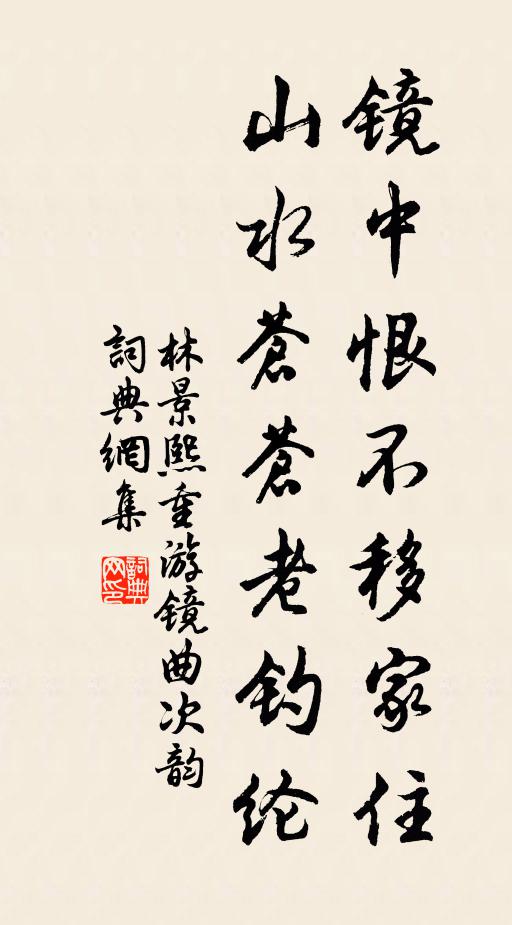 镜中恨不移家住
山水蒼蒼老钓纶
林景熙重游镜曲次韵
詞典網集
詞典网印